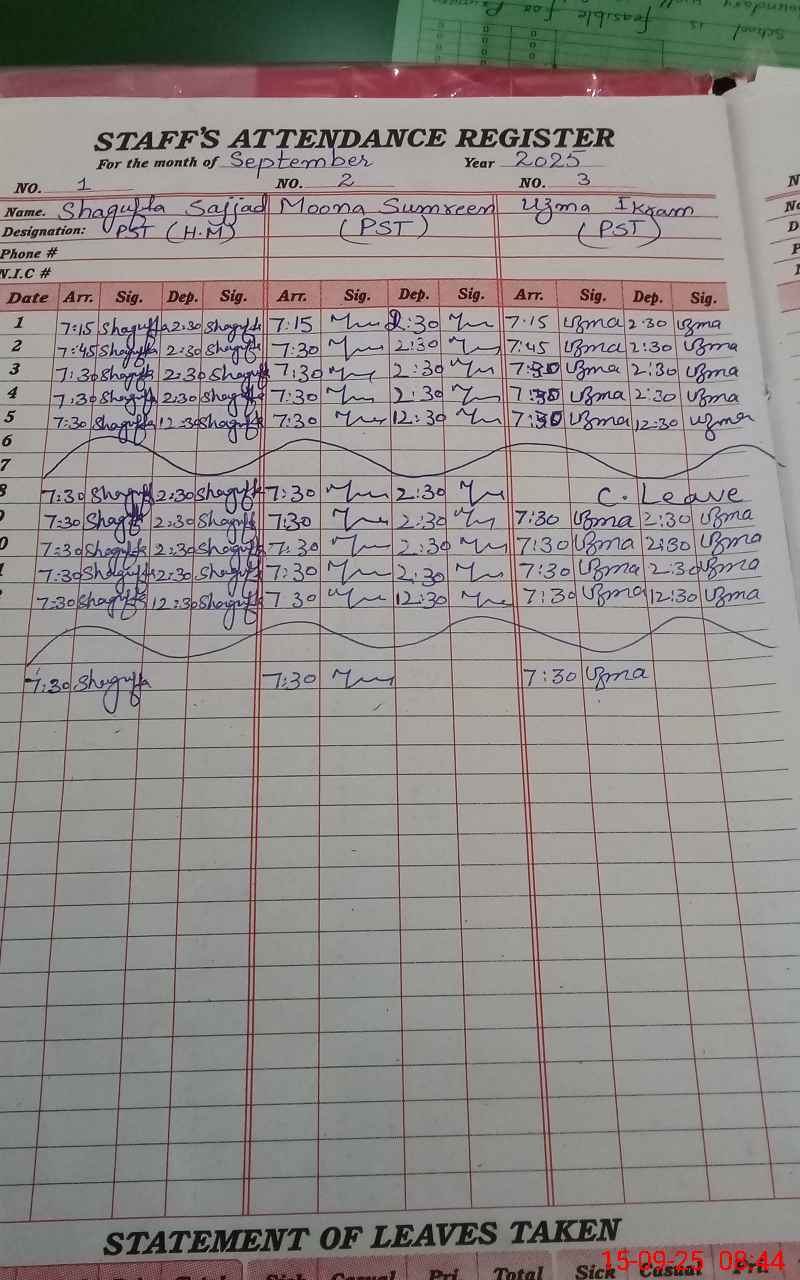 School is feasible for
STAFF'S ATTENDANCE REGISTER
For the month of September Year 2025
NO. 1 NO. 2 NO. 3
Name. Shagufta Sajjad Moona Sumreen Uzma Ikram
Designation: PST (H.M) (PST) (PST)
Phone #
N.I.C #
Date Arr. Sig. Dep. Sig. Arr. Sig. Dep. Sig. Arr. Sig. Dep. Sig.
1 7:15 Shagufta 2:30 Shagufta 7:15 2:30 7:15 Uzma 2:30 Uzma
2 7:45 Shagufta 2:30 Shagufta 7:30 2:30 7:45 Uzma 2:30 Uzma
3 7:30 Shagufta 2:30 Shagufta 7:30 2:30 7:30 Uzma 2:30 Uzma
4 7:30 Shagufta 2:30 Shagufta 7:30 2:30 7:30 Uzma 2:30 Uzma
5 7:30 Shagufta 12:30 Shagufta 7:30 12:30 7:30 Uzma 12:30 Uzma
6
7
8 7:30 Shagufta 2:30 Shagufta 7:30 2:30 C. Leave
7:30 Shagufta 2:30 Shagufta 7:30 2:30 7:30 Uzma 2:30 Uzma
0 7:30 Shagufta 2:30 Shagufta 7:30 2:30 7:30 Uzma 2:30 Uzma
7:30 Shagufta 2:30 Shagufta 7:30 2:30 7:30 Uzma 2:30 Uzma
7:30 Shagufta 12:30 Shagufta 7 30 12:30 7:30 Uzma 12:30 Uzma
7:30 Shagufta 7:30 7:30 Uzma
STATEMENT OF LEAVES TAKEN
Sick Casual Pri Total Sick Casual Pri.
15-09-25 08:44